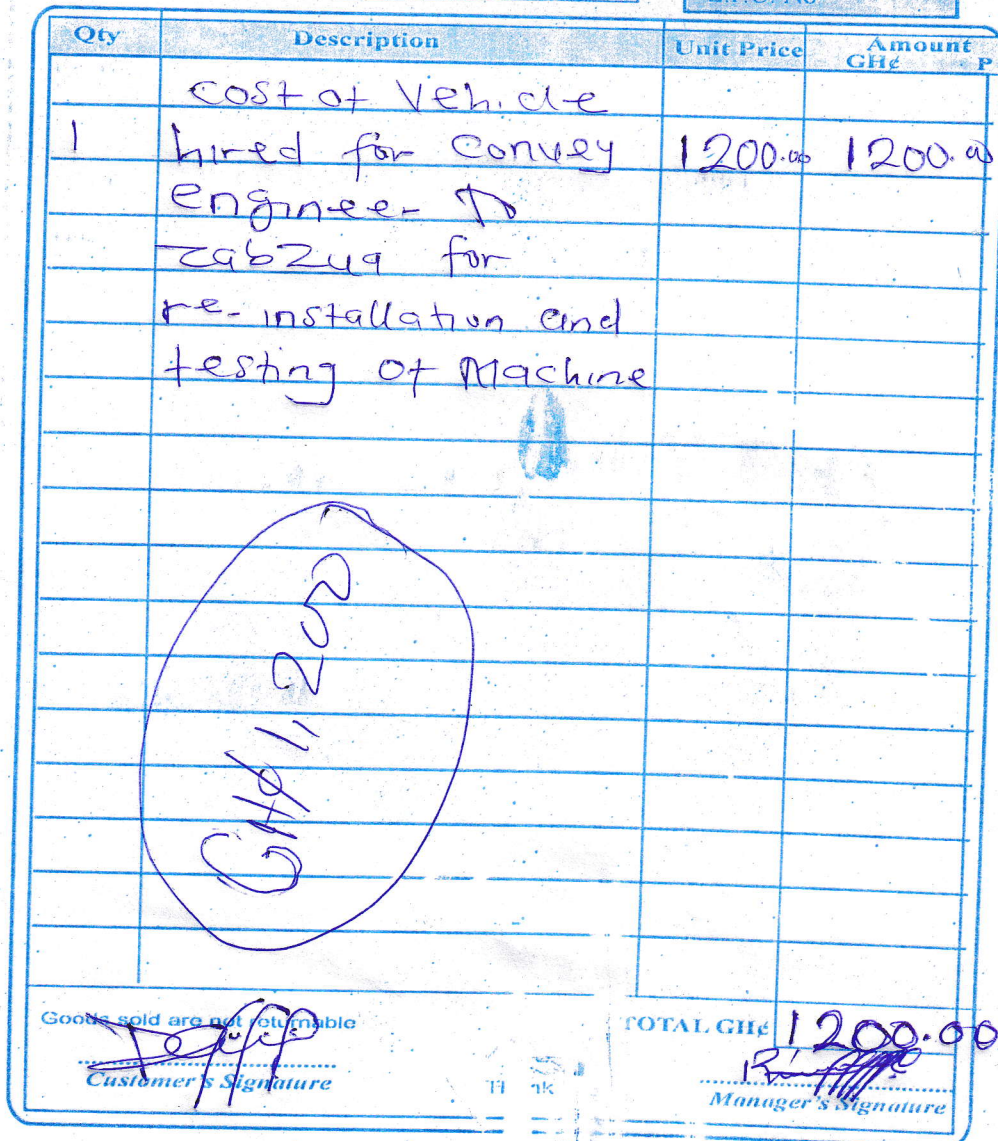 Qty Description Unit Price Amount GH¢ P
cost of Vehicle
1 hired for Convey 1200.00 1200.00
engineer to
zabzua for
re-installation and
testing of Machine
GH¢1,200
Goods sold are not returnable
TOTAL GH¢ 1200.00
Customer's Signature
Manager's Signature